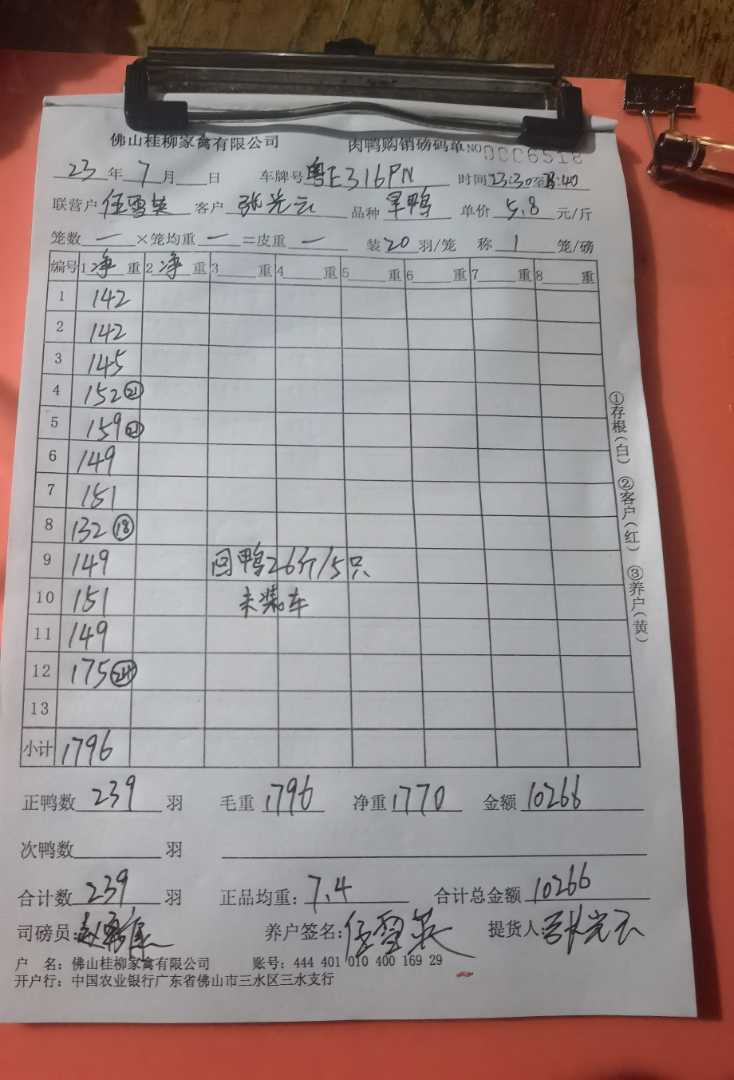 佛山桂柳家禽有限公司 肉鸭购销磅码单 NO 0006518
23年7月 日 车牌号粤E316PN 时间23:30至 :40
联营户任雪英 客户张光云 品种旱鸭 单价5.8元/斤
笼数一×笼均重一=皮重一 装20羽/笼 称1笼/磅
编号 1净重 2净重 3 重 4 重 5 重 6 重 7 重 8 重
1 142
2 142
3 145
4 152 21
5 159 21
6 149
7 151
8 132 18
9 149 回鸭26斤/5只
10 151 未装车
11 149
12 175 24
13
小计 1796
①存根(白) ②客户(红) ③养户(黄)
正鸭数239羽 毛重1796 净重1770 金额10266
次鸭数 羽
合计数239羽 正品均重:7.4 合计总金额10266
司磅员: 养户签名:任雪英 提货人:张光云
户 名:佛山桂柳家禽有限公司 账号:444 401 010 400 169 29
开户行:中国农业银行广东省佛山市三水区三水支行